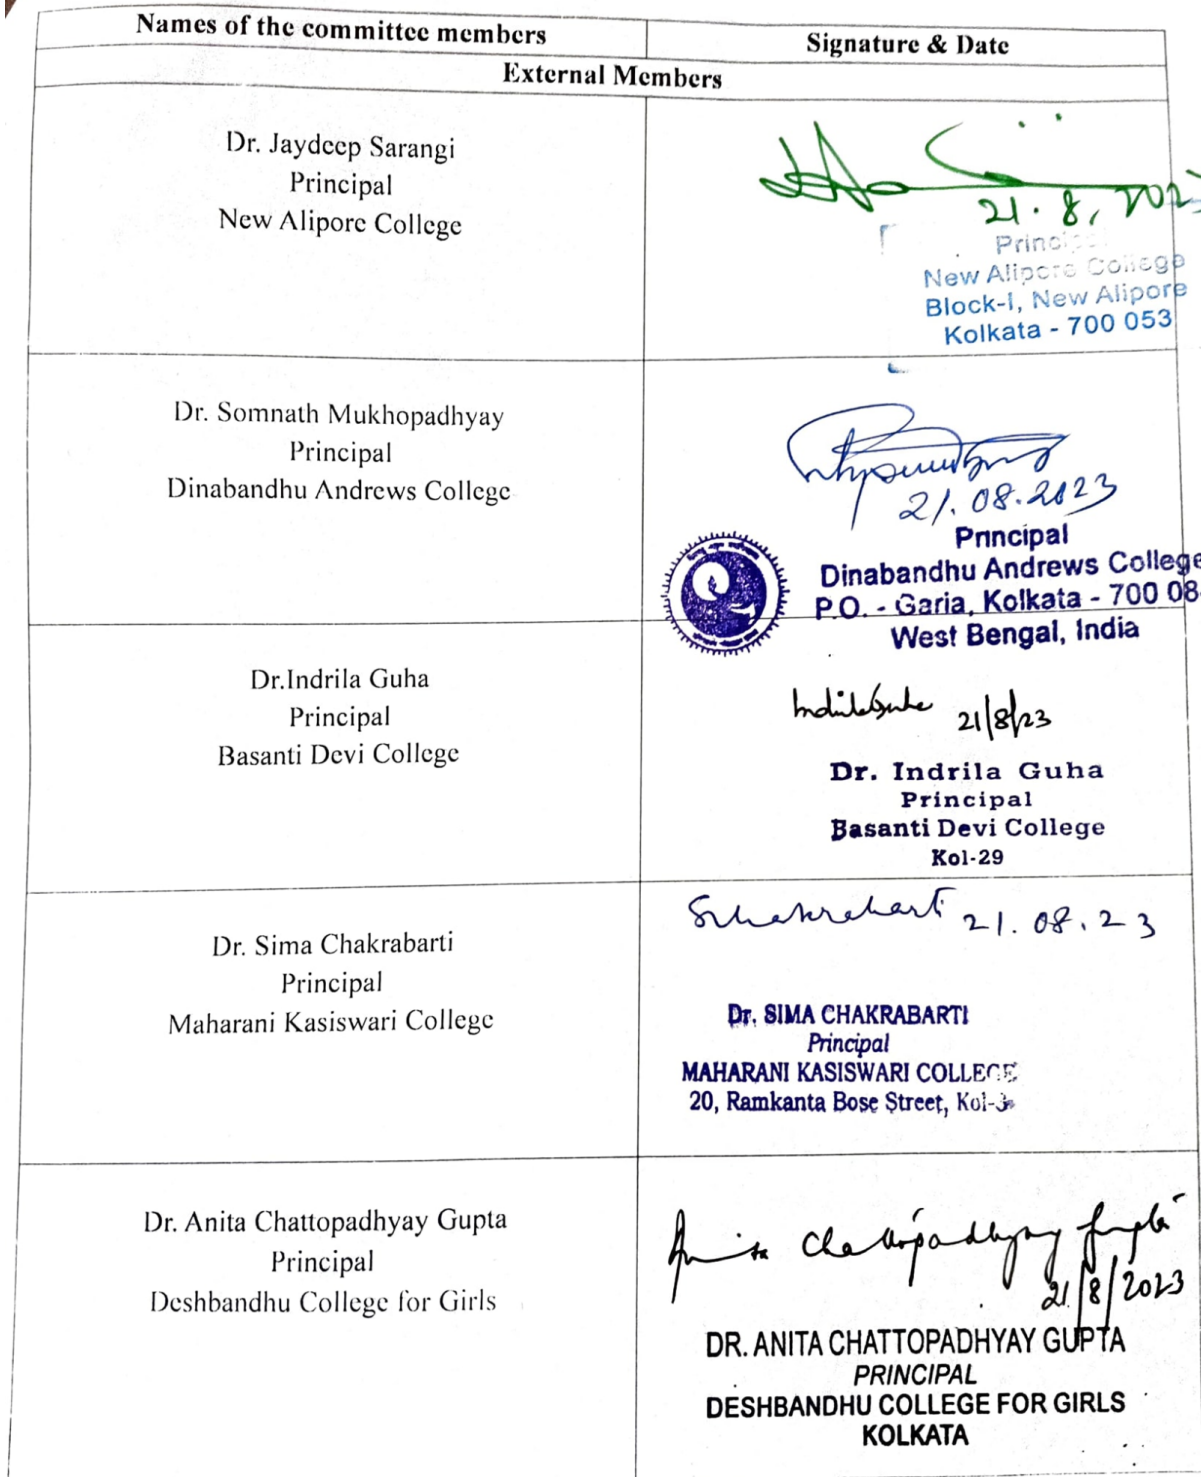 Names of the committee members
Signature & Date
External Members
Dr. Jaydeep Sarangi
Principal
New Alipore College
21.8.2023
Principal
New Alipore College
Block-I, New Alipore
Kolkata - 700 053
Dr. Somnath Mukhopadhyay
Principal
Dinabandhu Andrews College
21.08.2023
Principal
Dinabandhu Andrews College
P.O. - Garia, Kolkata - 700 08
West Bengal, India
Dr.Indrila Guha
Principal
Basanti Devi College
Indrila Guha 21/8/23
Dr. Indrila Guha
Principal
Basanti Devi College
Kol-29
Dr. Sima Chakrabarti
Principal
Maharani Kasiswari College
SChakrabarti 21.08.23
Dr. SIMA CHAKRABARTI
Principal
MAHARANI KASISWARI COLLEGE
20, Ramkanta Bose Street, Kol-3
Dr. Anita Chattopadhyay Gupta
Principal
Deshbandhu College for Girls
Anita Chattopadhyay Gupta
21/8/2023
DR. ANITA CHATTOPADHYAY GUPTA
PRINCIPAL
DESHBANDHU COLLEGE FOR GIRLS
KOLKATA